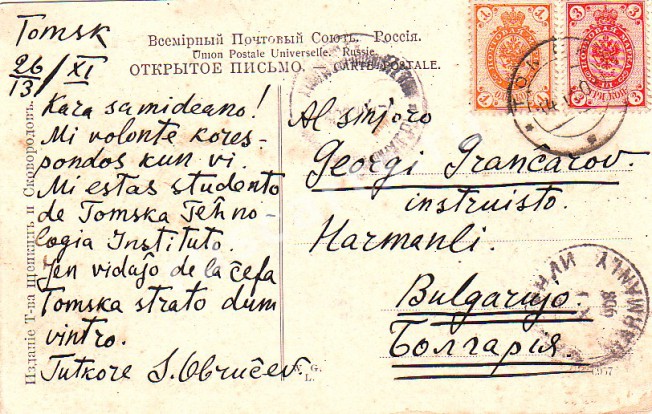 Tomsk
26/13 / XI
Всемірный Почтовый Союзъ. Россія.
Union Postale Universelle. Russie.
ОТКРЫТОЕ ПИСЬМО. — CARTE POSTALE.
Kara samideano!
Mi volonte kores-
pondos kun vi.
Mi estas studento
de Tomska Teĥno-
logia Instituto.
Jen vidaĵo de la ĉefa
Tomska strato dum
vintro.
Tutkore S. Obruĉev.
Al sinjoro
Georgi Granĉarov.
instruisto.
Harmanli.
Bulgarujo.
Болгарія.
Изданіе Т-ва Щепкинъ и Сковородовъ.
HARMANLY